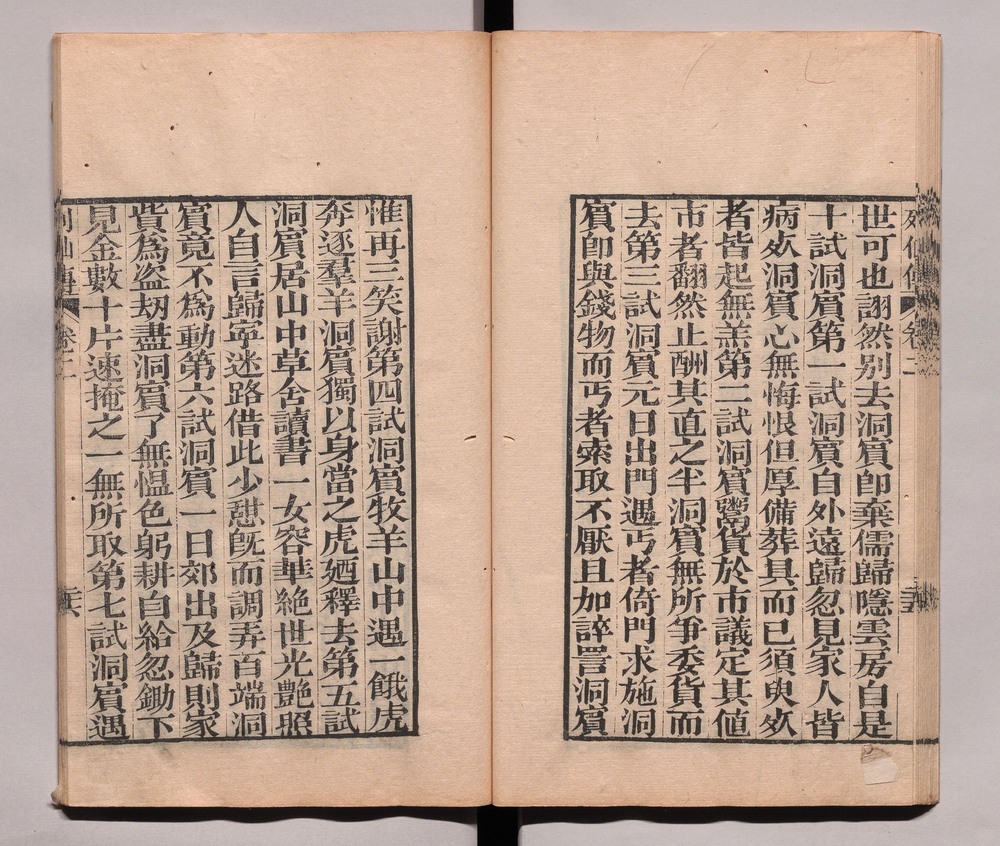 世可也詡然别去洞賔即棄儒歸隱雲房自是
十試洞賔第一試洞賔自外遠歸忽見家人皆
病歿洞賔心無悔恨但厚備葬具而已須臾歿
者皆起無恙第二試洞賔鬻貨於市議定其值
市者翻然止酬其直之半洞賔無所爭委貨而
去第三試洞賔元日出門遇丐者倚門求施洞
賔即與錢物而丐者索取不厭且加誶詈洞賔
惟再三笑謝第四試洞賔牧羊山中遇一餓虎
奔逐羣羊洞賔獨以身當之虎廼釋去第五試
洞賔居山中草舍讀書一女容華絶世光艶照
人自言歸寧迷路借此少憇旣而調弄百端洞
賔竟不爲動第六試洞賔一日郊出及歸則家
貲爲盗刼盡洞賔了無慍色躬耕自給忽鋤下
見金數十片速掩之一無所取第七試洞賔遇
列仙傳 卷三